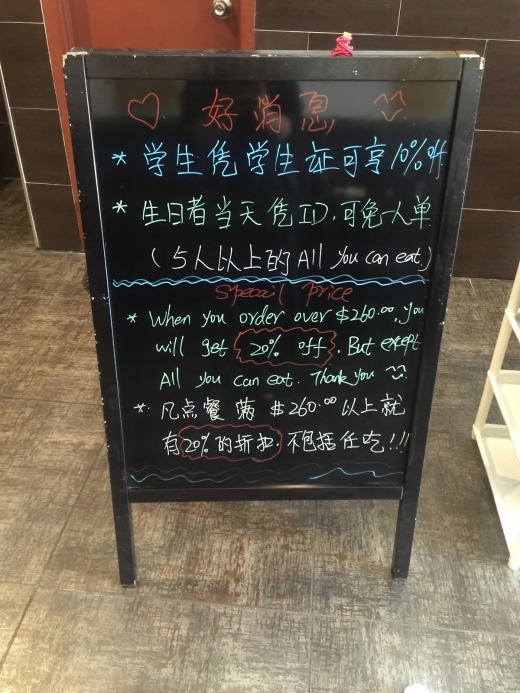 ♡ 好消息 ^^
* 学生凭学生证可享10% off
* 生日者当天凭ID,可免一人单
(5人以上的All you can eat.)
Specail Price
* When you order over $260.00, you
will get 20% off. But except
All you can eat. Thank you ^^
* 凡点餐满$260.00以上就
有20%的折扣. 不包括任吃!!!